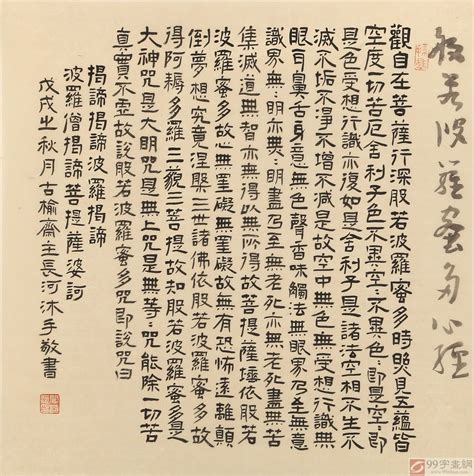 般若波羅蜜多心經
觀自在菩薩行深般若波羅蜜多時照見五蘊皆
空度一切苦厄舍利子色不異空〻不異色〻即是空〻即
是色受想行識亦復如是舍利子是諸法空相不生不
滅不垢不淨不增不減是故空中無色無受想行識無
眼耳鼻舌身意無色聲香味觸法無眼界乃至無意
識界無〻明亦無〻明盡乃至無老死亦無老死盡無苦
集滅道無智亦無得以無所得故菩提薩埵依般若
波羅蜜多故心無罣礙無罣礙故無有恐怖遠離顛
倒夢想究竟涅槃三世諸佛依般若波羅蜜多故
得阿耨多羅三藐三菩提故知般若波羅蜜多是
大神咒是大明咒是無上咒是無等〻咒能除一切苦
真實不虛故說般若波羅蜜多咒即說咒曰
揭諦揭諦波羅揭諦
波羅僧揭諦菩提薩婆訶
戊戌之秋月古榆齋主長河沐手敬書
99字畫網